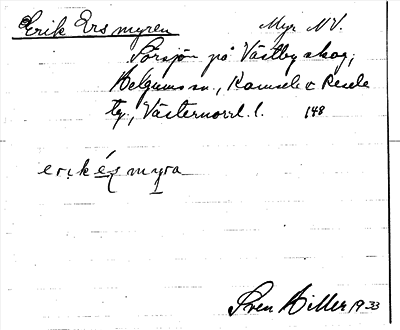 Erik Ers myren Myr NV.
Sörsjön på Västby skog,
Helgums sn., Ramsele & Resele
tg., Västernorrl. l. 148
erik és myra
Sven Hiller 1933